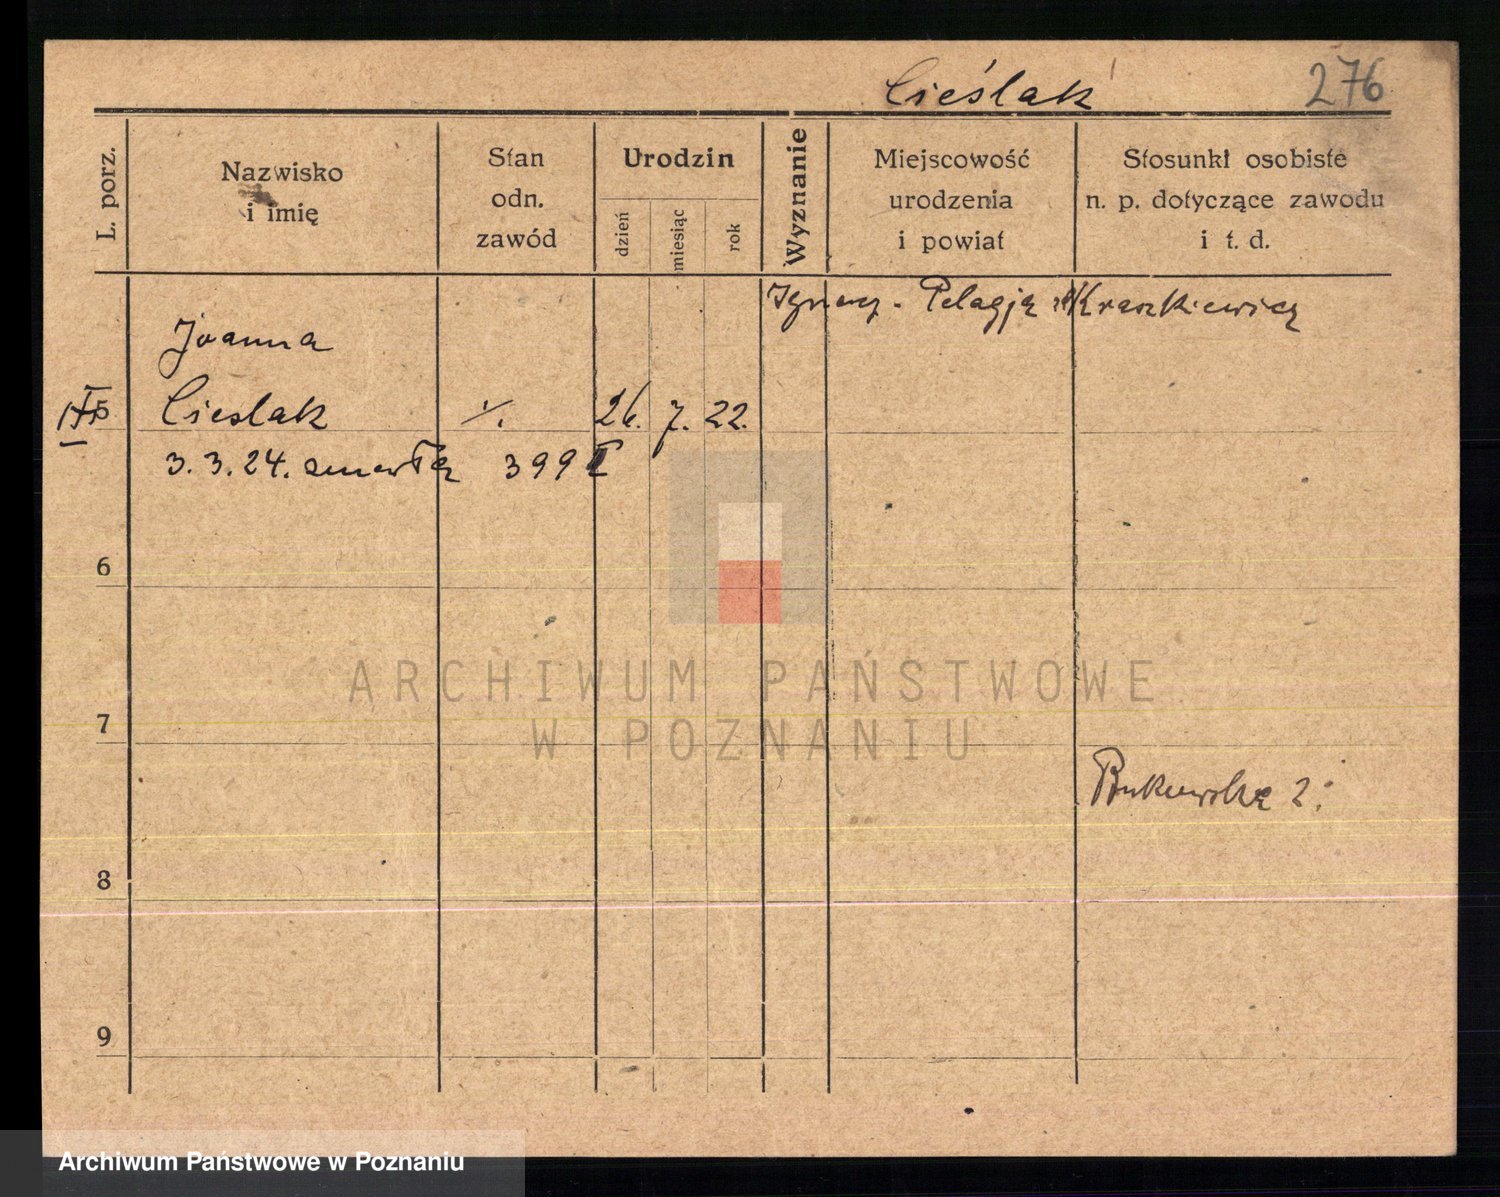 Cieślak 276
L. porz.
Nazwisko
i imię
Stan
odn.
zawód
Urodzin
dzień
miesiąc
rok
Wyznanie
Miejscowość
urodzenia
i powiat
Stosunki osobiste
n. p. dotyczące zawodu
i t. d.
Ignacy - Pelagją Kraszkiewicz
Joanna
5 Cieslak ./. 26. 7. 22.
3.3.24. zmarła 399
6
ARCHIWUM PAŃSTWOWE
W POZNANIU
7
Bukowska 2
8
9
Archiwum Państwowe w Poznaniu